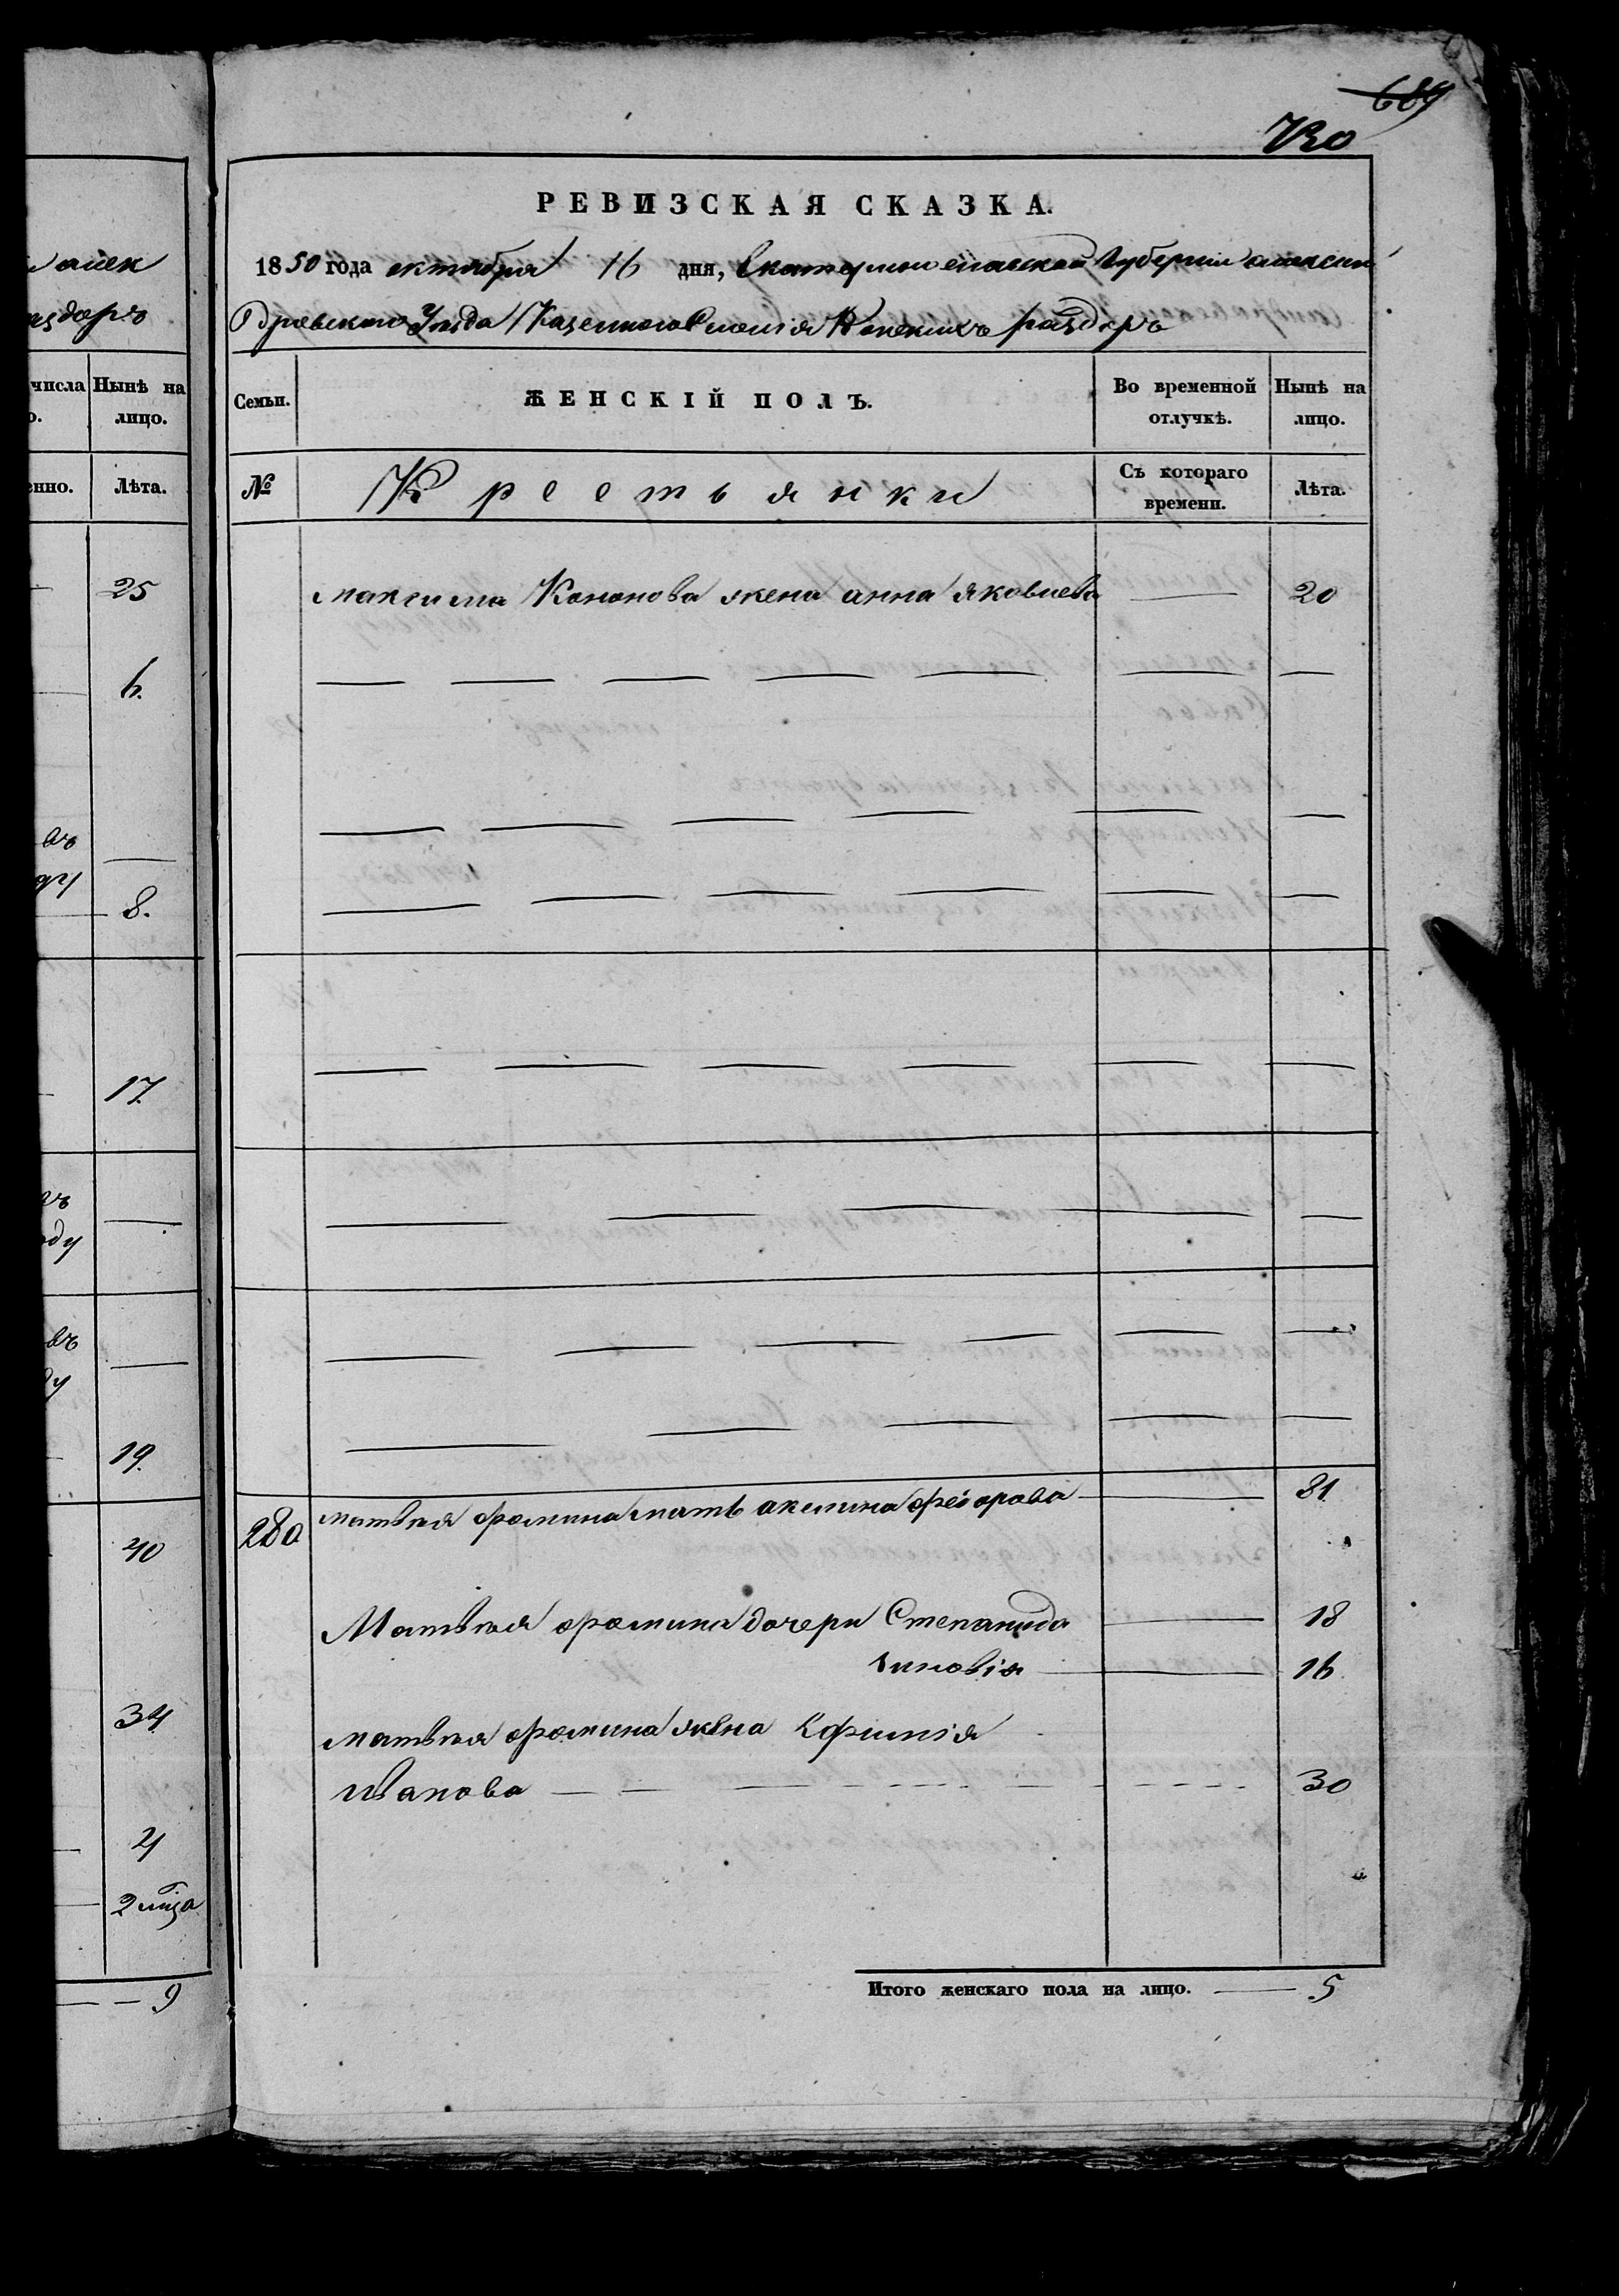 689
720
РЕВИЗСКАЯ СКАЗКА.
1850 года октября 16 дня, Екатеринославской Губернии алексан
Дровскаго Уезда Казеннаго Селенія Конскихъ раздоръ
Семьи.
ЖЕНСКІЙ ПОЛЪ.
Во временной отлучкѣ.
Нынѣ на лицо.
№
Крестьянки
Съ котораго времени.
Лѣта.
максима Кононова жена анна яковлева — 20
280 матвея фомина мать акелина федорова — 81
Матвея фомина дочери Степанида — 18
Зиновія — 16
матвея фомина жена Ефимія
Иванова — 30
Итого женскаго пола на лицо. — 5
алек
аздоръ
числа
Нынѣ на лицо.
нно.
Лѣта.
25
6.
въ
ду
8.
17.
въ
оду
въ
ду
19.
40
34
4
2 міца
9